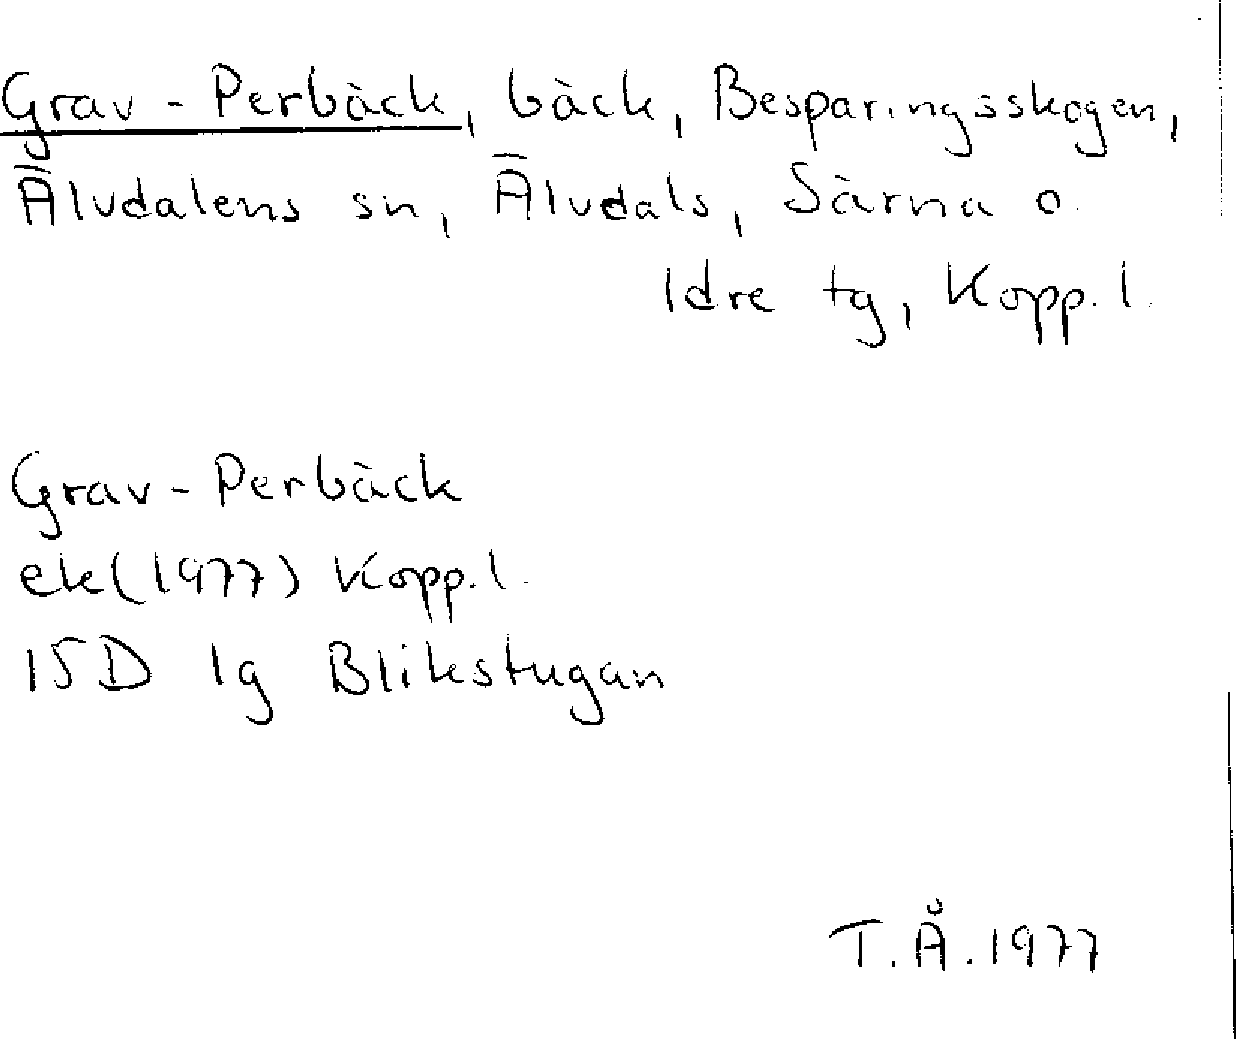 Grav-Perbäck, bäck, Besparingsskogen,
Älvdalens sn, Älvdals, Särna o.
Idre tg, Kopp. l.
Grav-Perbäck
ek(1977) Kopp. l.
15D 1g Blikstugan
T.Å.1977